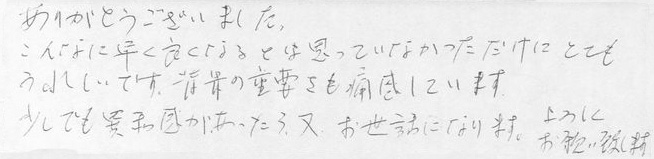 ありがとうございました。
こんなに早く良くなるとは思っていなかっただけにとても
うれしいです。背骨の重要さも痛感しています。
少しでも異和感があったら、又、お世話になります。よろしく
お願い致します